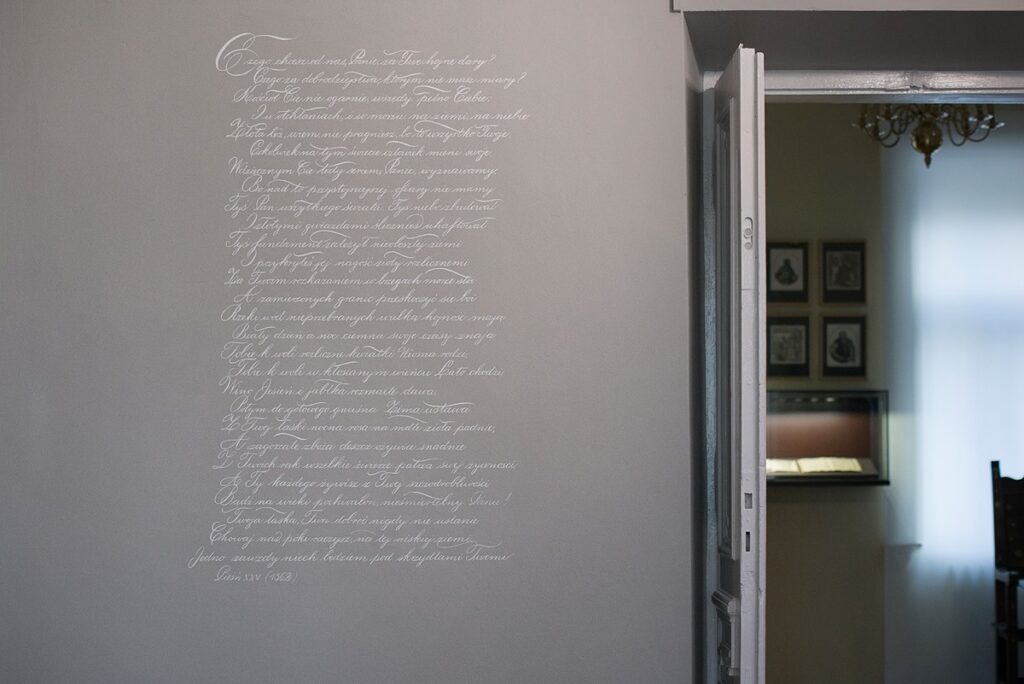 Czego chcesz od nas, Panie, za Twe hojne dary?
Czego za dobrodziejstwa, którym nie masz miary?
Kościół Cię nie ogarnie, wszędy pełno Ciebie:
I w otchłaniach, i w morzu, na ziemi, na niebie
Złota też, wiem, nie pragniesz, bo to wszystko Twoje,
Cokolwiek na tym świecie człowiek mieni swoje.
Wdzięcznym Cię tedy sercem, Panie, wyznawamy,
Bo nad to przystojniejszej ofiary nie mamy
Tyś Pan wszytkiego świata. Tyś niebo zbudował
I złotymi gwiazdami ślicznieś uhaftował
Tyś fundament założył nieobeszłej ziemi
I przykryłeś jej nagość zioły rozlicznemi
Za Twoim rozkazaniem w brzegach morze stoi
A zamierzonych granic przeskoczyć się boi
Rzeki wód nieprzebranych wielką hojność mają
Biały dzień a noc ciemna swoje czasy znają
Tobie k woli rozliczne kwiatki Wiosna rodzi,
Tobie k woli w kłosianym wieńcu Lato chodzi
Wino Jesień i jabłka rozmaite dawa,
Potym do gotowego gnuśna Zima wstawa
Z Twej łaski nocna rosa na mdłe zioła padnie,
A zagorzałe zboża deszcz ożywia snadnie
Z Twoich rąk wszelkie źwierzę patrza swej żywności
A Ty każdego żywisz z Twej szczodrobliwości
Bądź na wieki pochwalon, nieśmiertelny Panie!
Twoja łaska, Twa dobroć nigdy nie ustanie
Chowaj nas póki raczysz, na tej niskiej ziemi,
Jedno zawżdy niech będziem pod skrzydłami Twemi
Pieśń XXV (1562)